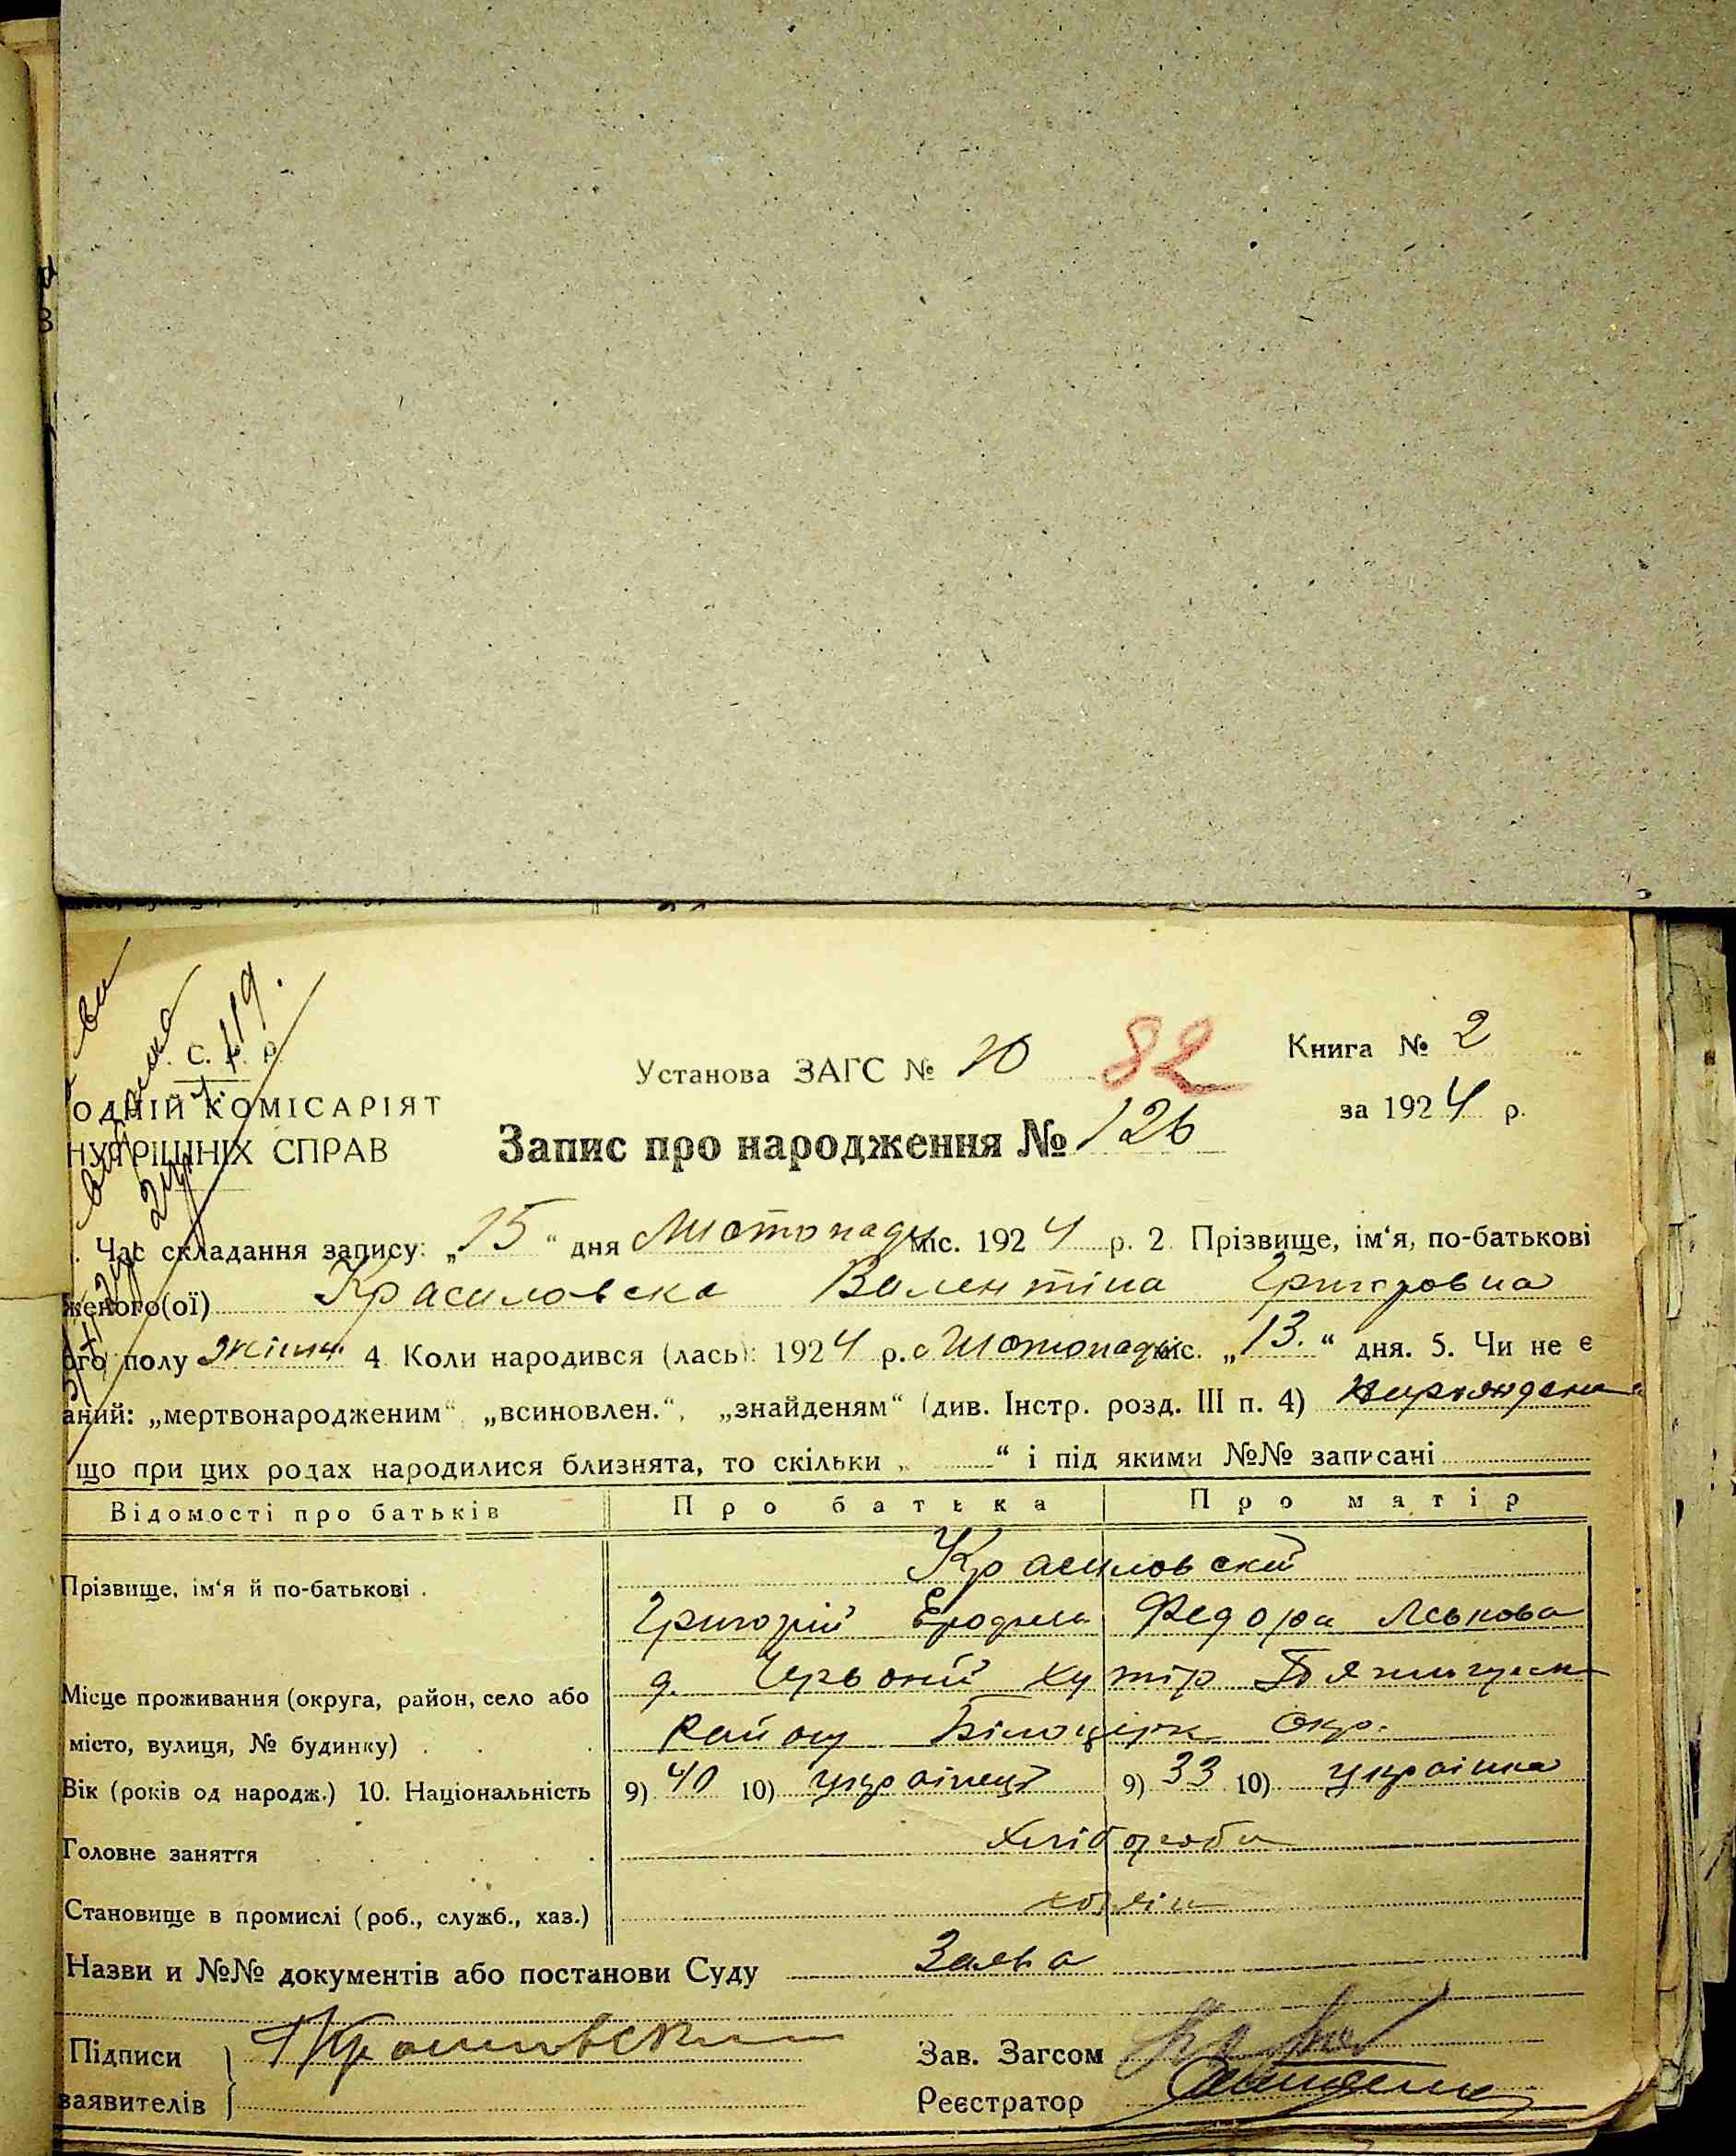 С. Р. Р.
Установа ЗАГС № 10 82 Книга № 2
ОДНІЙ КОМІСАРІЯТ за 1924 р.
НУТРІШНІХ СПРАВ Запис про народження № 126
Час складання запису: „15“ дня Листопаду міс. 1924 р. 2. Прізвище, ім‘я, по-батькові
женого(ої) Красиловска Валентіна Григоровна
ого полу жіноч. 4 Коли народився (лась): 1924 р. Листопаду міс. „13.“ дня. 5. Чи не є
аний: „мертвонародженим“ „всиновлен.“, „знайденям“ (див. Інстр. розд. III п. 4)
що при цих родах народилися близнята, то скільки „ “ і під якими №№ записані
Відомості про батьків Про батька Про матір
Прізвище, ім‘я й по-батькові . Красиловскій
Григорій Федора
Місце проживання (округа, район, село або д. Червоний хутір
місто, вулиця, № будинку) . Району Білоцірк Окр.
Вік (років од народж.) 10. Національність 9) 40 10) українець 9) 33 10) українка
Головне заняття Хлібороби
Становище в промислі (роб., служб., хаз.) хозяін
Назви и №№ документів або постанови Суду Заява
Підписи Зав. Загсом
заявителів Реєстратор